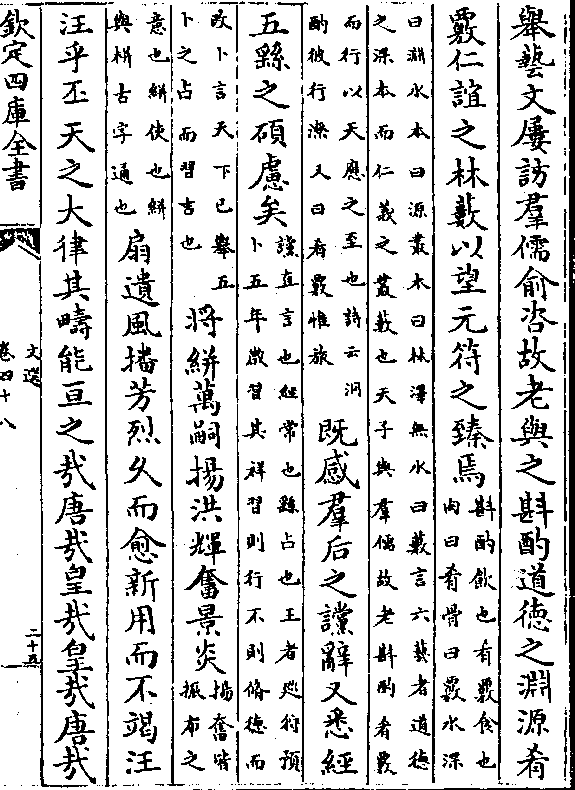 舉藝文屢訪羣儒俞咨故老與之斟酌道德之淵源肴
覈仁誼之林藪以望元符之臻焉
斟酌飲也有覈食也
肉曰肴骨曰覈水深
曰淵水本曰源叢木曰林澤無水曰藪言六藝者道德
之深本而仁義之叢藪也天子與羣儒故老斟酌肴覈
而行以天應之至也詩云泂
酌彼行潦又曰肴覈惟旅
既感羣后之讜辭又悉經
五繇之碩慮矣
讜直言也經常也繇占也王者巡狩預
卜五年歲習其祥習則行不則脩德而
改卜言天下已舉五
卜之占而習吉也
將絣萬嗣揚洪輝奮景炎
揚奮皆
振布之
意也絣使也絣
與栟古字通也
扇遺風播芳烈久而愈新用而不竭汪
汪乎丕天之大律其疇能亘之哉唐哉皇哉皇哉唐哉
欽定四庫全書
文選
卷四十八
二十五